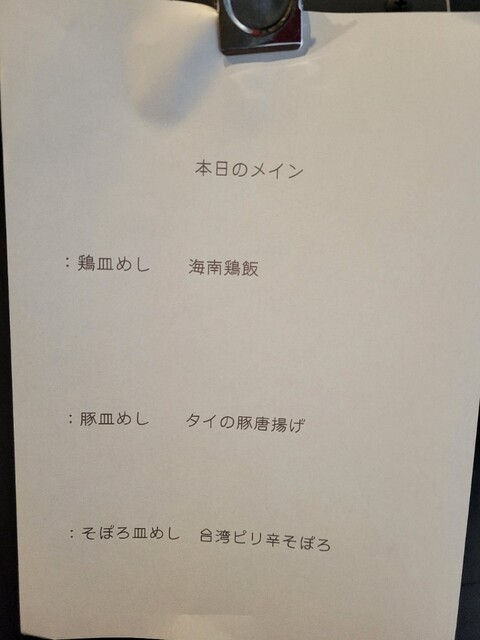 本日のメイン
：鶏皿めし　海南鶏飯
：豚皿めし　タイの豚唐揚げ
：そぼろ皿めし　台湾ピリ辛そぼろ